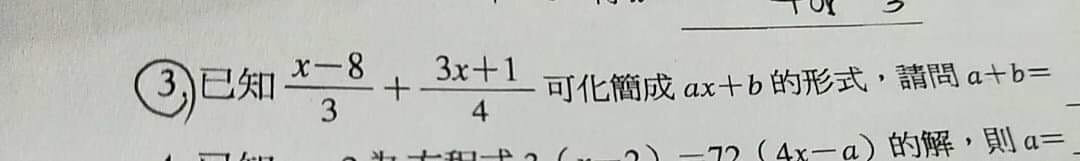 3. 已知 \frac{x-8}{3} + \frac{3x+1}{4} 可化簡成 ax+b 的形式，請問 a+b=
-72（4x-a）的解，則 a=